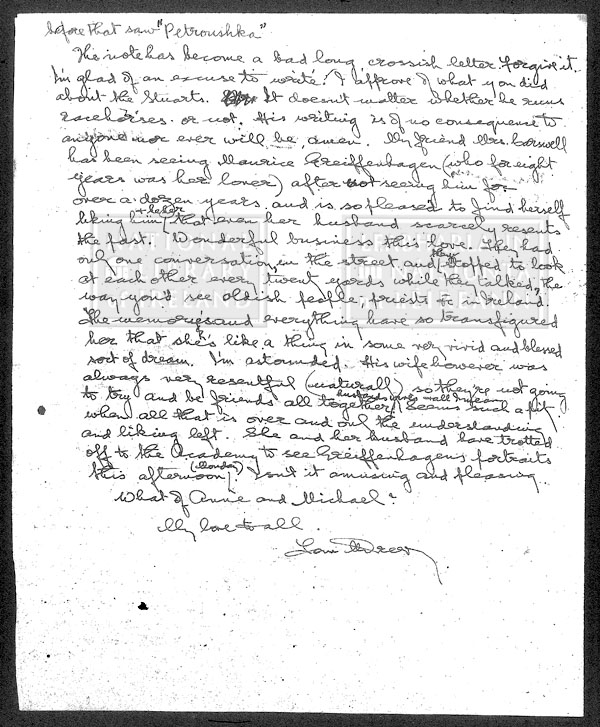 before that saw "Petroushka"
The note has become a bad long crossish letter. Forgive it.
I'm glad of an excuse to write. I approve of what you did
about the Stuarts. It doesn't matter whether he runs
racehorses or not. His writing is of no consequence to
anyone nor ever will be, amen. My friend Mrs. Carswell
has been seeing Maurice Greiffenhagen (who for eight
years was her lover) after not seeing him for
over a dozen years, and is so pleased to find herself
liking him & he her that even her husband scarcely resents
the past. Wonderful business this love. They had
only one conversation, in the street and they stopped to look
at each other every twenty yards while they talked, the
way you'd see oldish people, priests &c in Ireland.
The memories and everything have so transfigured
her that she's like a thing in some very vivid and blessed
sort of dream. I'm astounded. His wife however was
always very resentful (naturally) so they're not going
to try and be friends all together, husbands wives & all I mean. Seems such a pity
when all that is over and only the understanding
and liking left. She and her husband have trotted
off to the Academy to see Greiffenhagen's portraits
this afternoon (Monday). Isn't it amusing and pleasing.
What of Annie and Michael?
My love to all.